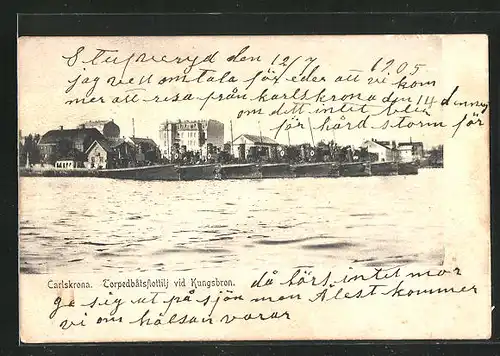 Stufveryd den 12/7 1905
jag vell omtala för eder att vi kom
mer att resa från karlskrona den 14 denney
om ditt intet blir
för hård storm för
Carlskrona. Torpedbåtsflottilj vid Kungsbron.
då törs intet mor
ge sig ut på sjön men Alest kommer
vi om hälsan varar